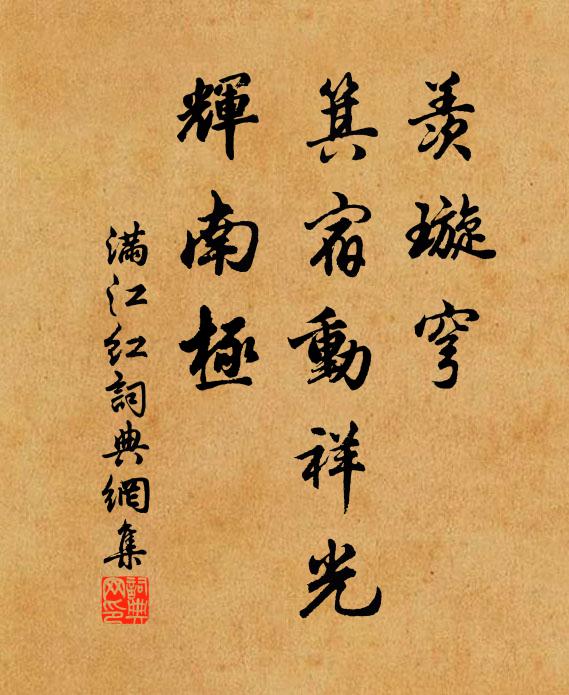 羨璇穹
箕宿動祥光
輝南極
滿江紅詞典網集
詞典网印